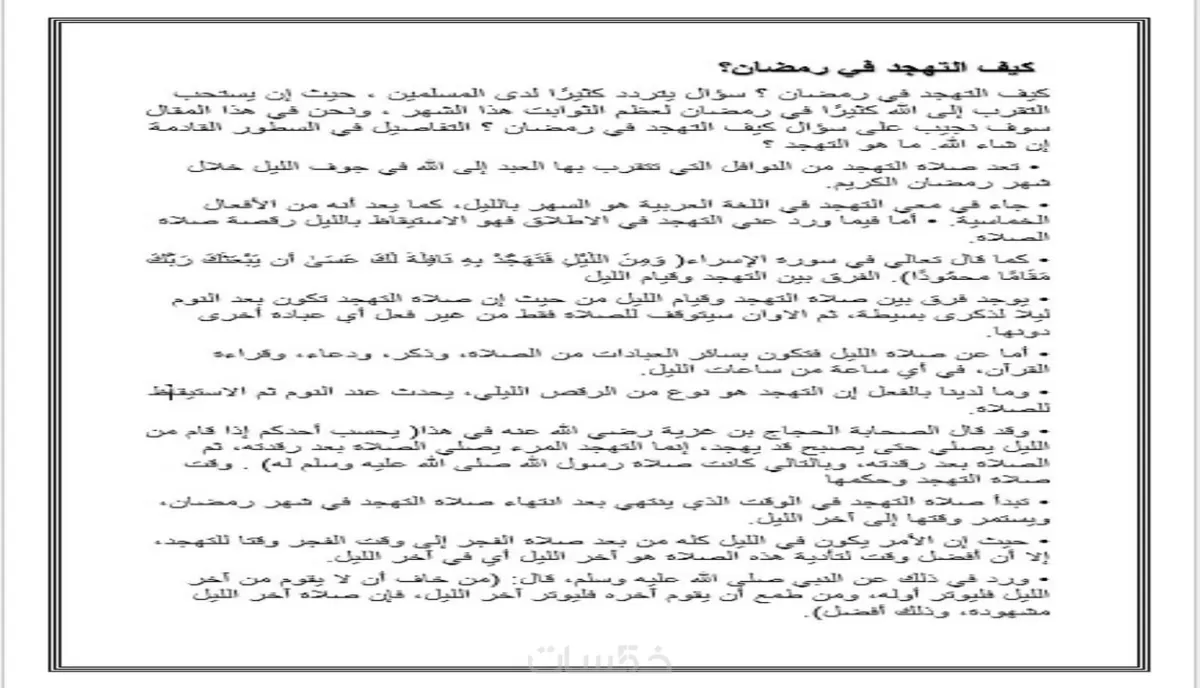 كيف التهجد في رمضان؟
كيف التهجد في رمضان ؟ سؤال يتردد كثيرًا لدى المسلمين ، حيث إن يستحب
التقرب إلى الله كثيرًا في رمضان لعظم الثوابت هذا الشهر ، ونحن في هذا المقال
سوف نجيب على سؤال كيف التهجد في رمضان ؟ التفاصيل في السطور القادمة
إن شاء الله. ما هو التهجد ؟
• تعد صلاة التهجد من النوافل التي تتقرب بها العبد إلى الله في جوف الليل خلال
شهر رمضان الكريم.
• جاء في معى التهجد في اللغة العربية هو السهر بالليل، كما يعد أنه من الأفعال
الخماسية. • أما فيما ورد عني التهجد في الاطلاق فهو الاستيقاظ بالليل رقصة صلاه
الصلاه.
• كما قال تعالي في سوره الإسراء( وَمِنَ اللَّيْلِ فَتَهَجَّدْ بِهِ نَافِلَةً لَكَ عَسَىٰ أَن يَبْعَثَكَ رَبُّكَ
مَقَامًا محمُودًا). الفرق بين التهجد وقيام الليل
• يوجد فرق بين صلاه التهجد وقيام الليل من حيث إن صلاه التهجد تكون بعد النوم
ليلا لذكرى بسيطة، ثم الاوان سيتوقف للصلاه فقط من غير فعل أي عباده أخرى
دونها.
• أما عن صلاه الليل فتكون بسائر العبادات من الصلاه، وذكر، ودعاء، وقراءة
القرآن، في أي ساعة من ساعات الليل.
• وما لدينا بالفعل إن التهجد هو نوع من الرقص الليلي، يحدث عند النوم ثم الاستيقاظ
للصلاه.
• وقد قال الصحابة الحجاج بن عزية رضي الله عنه في هذا( يحسب أحدكم إذا قام من
الليل يصلي حتى يصبح قد يهجد، إنما التهجد المرء يصلي الصلاة بعد رقدته، ثم
الصلاه بعد رقدته، وبالتالي كانت صلاه رسول الله صلى الله عليه وسلم له) . وقت
صلاة التهجد وحكمها
• تبدأ صلاة التهجد في الوقت الذي ينتهي بعد انتهاء صلاة التهجد في شهر رمضان،
ويستمر وقتها إلى آخر الليل.
• حيث إن الأمر يكون في الليل كله من بعد صلاة الفجر إلى وقت الفجر وقتا للتهجد،
إلا أن أفضل وقت لتأدية هذه الصلاة هو آخر الليل أي في آخر الليل.
• ورد في ذلك عن النبي صلى الله عليه وسلم، قال: (من خاف أن لا يقوم من آخر
الليل فليوتر أوله، ومن طمع أن يقوم آخره فليوتر آخر الليل، فإن صلاة آخر الليل
مشهودة، وذلك أفضل).
خمسات